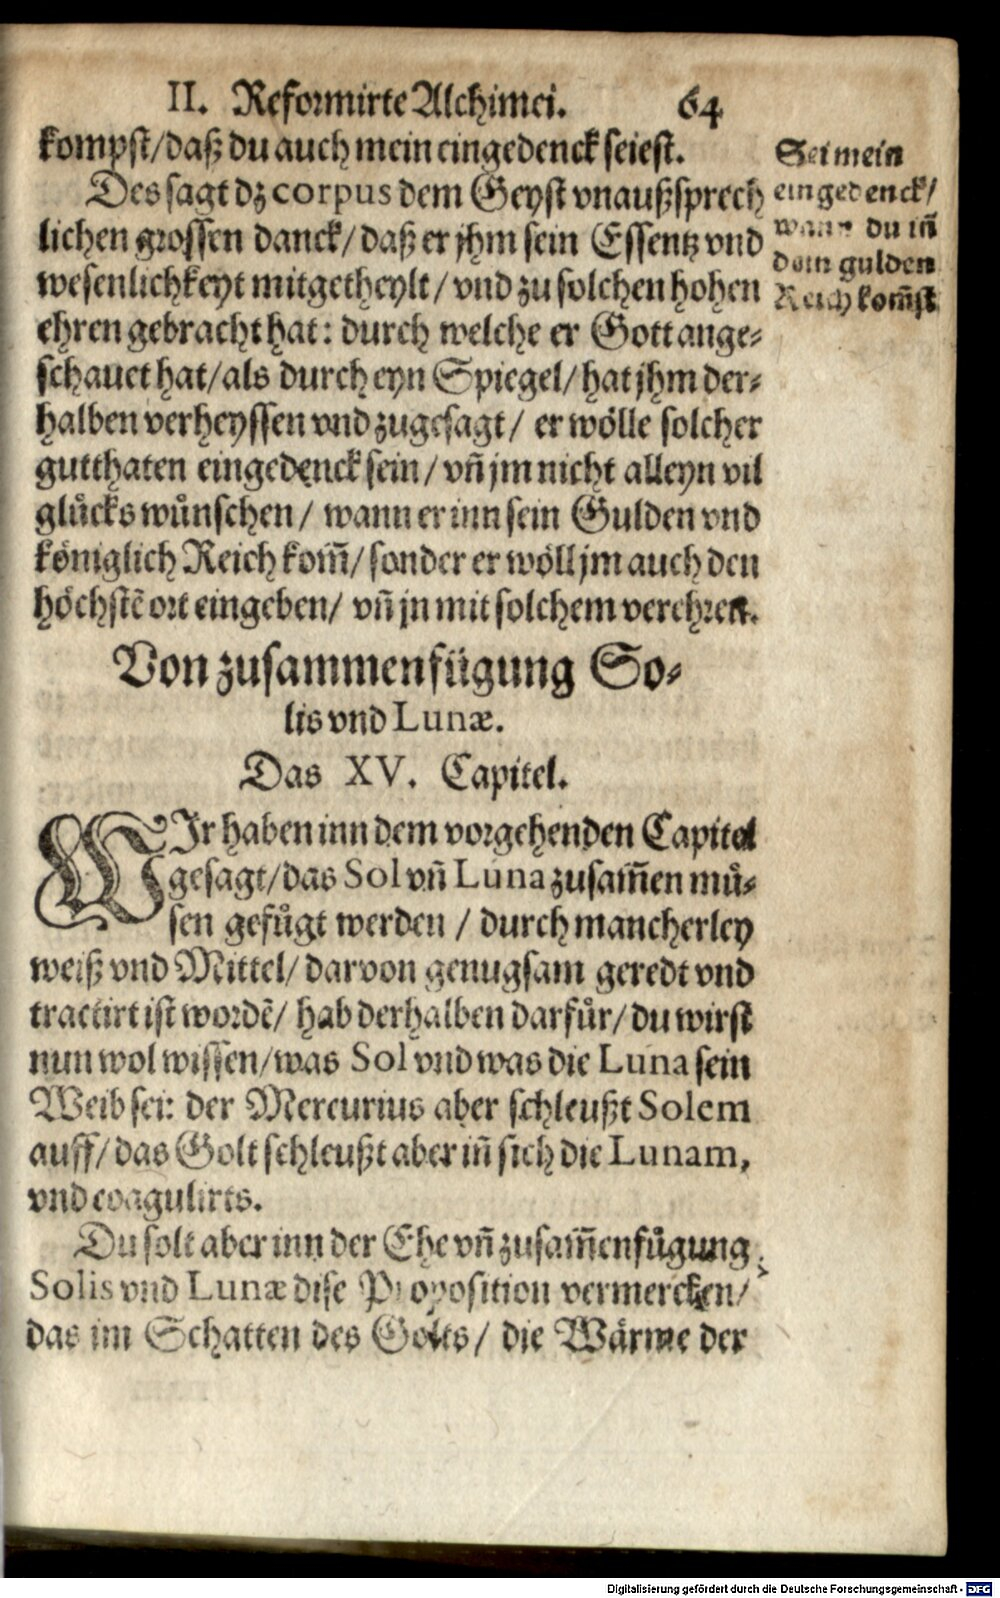 II. Reformirte Alchimei. 64
kompst/daß du auch mein eingedenck seiest.
Des sagt dz corpus dem Geyst vnaußsprech
lichen grossen danck/daß er jhm sein Essentz vnd
wesenlichkeyt mitgetheylt/vnd zu solchen hohen
ehren gebracht hat: durch welche er Gott ange-
schauet hat/als durch eyn Spiegel/hat jhm der-
halben verheyssen vnd zugesagt/ er wölle solcher
gutthaten eingedenck sein/vñ jm nicht alleyn vil
glücks wünschen/ wann er inn sein Gulden vnd
königlich Reich kom̃/sonder er wöll jm auch den
höchstẽ ort eingeben/ vñ jn mit solchem verehren.
Sei mein
eingedenck/
wann du iñ
dein gulden
Reich kom̃st
Von zusammenfügung So-
lis vnd Lunæ.
Das XV. Capitel.
WIr haben inn dem vorgehenden Capitel
gesagt/das Sol vñ Luna zusam̃en mü-
sen gefügt werden / durch mancherley
weiß vnd Mittel/darvon genugsam geredt vnd
tractirt ist wordẽ/ hab derhalben darfür/du wirst
nun wol wissen/was Sol vnd was die Luna sein
Weib sei: der Mercurius aber schleußt Solem
auff/das Golt schleußt aber iñ sich die Lunam,
vnd coagulirts.
Du solt aber inn der Ehe vñ zusam̃enfügung
Solis vnd Lunæ dise Proposition vermercken/
das im Schatten des Golts/ die Wärme der
Digitalisierung gefördert durch die Deutsche Forschungsgemeinschaft - DFG